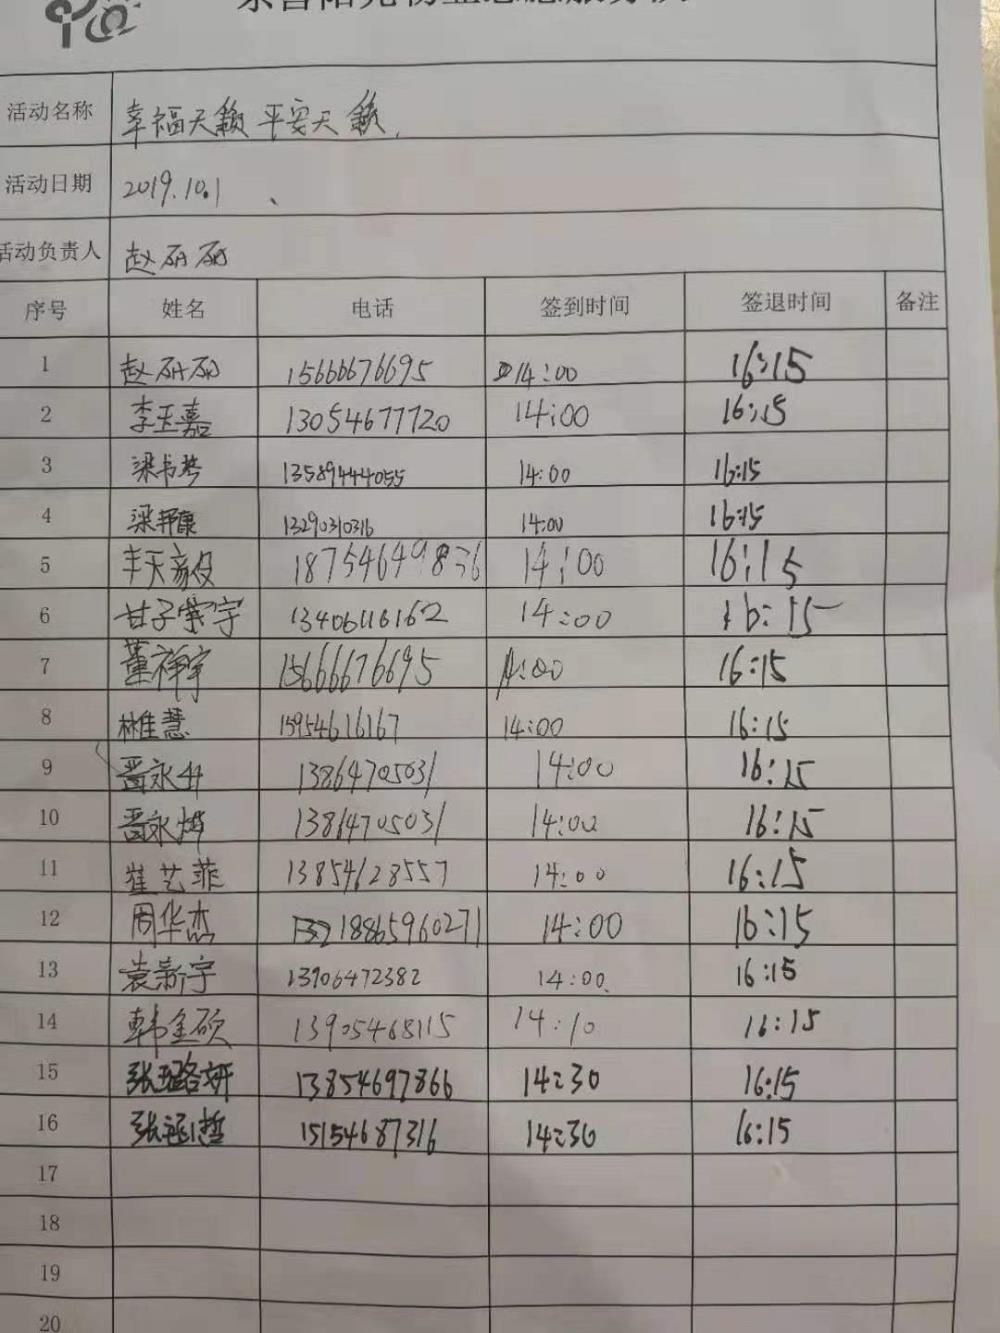 活动名称 幸福天籁 平安天籁.
活动日期 2019.10.1 、
活动负责人 赵研研
序号 姓名 电话 签到时间 签退时间 备注
1 赵研研 15666676695 14:00 16:15
2 李玉嘉 13054677720 14:00 16:15
3 梁书梦 13589444055 14:00 16:15
4 梁邦康 13290310316 14:00 16:15
5 18754649836 14:00 16:15
6 甘子寰宇 13406116162 14:00 16:15
7 董禅宇 15666676695 14:00 16:15
8 林佳慧 15954616167 14:00 16:15
9 晋永升 13864705031 14:00 16:15
10 晋永烨 13864705031 14:00 16:15
11 崔艺菲 13854628557 14:00 16:15
12 周华杰 18865960271 14:00 16:15
13 袁新宇 13906472382 14:00 16:15
14 韩金硕 13905468115 14:10 16:15
15 张璐妍 13854697866 14:30 16:15
16 张涵哲 15154687316 14:30 16:15
17
18
19
20